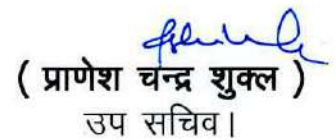 ( प्राणेश चन्द्र शुक्ल )
उप सचिव।